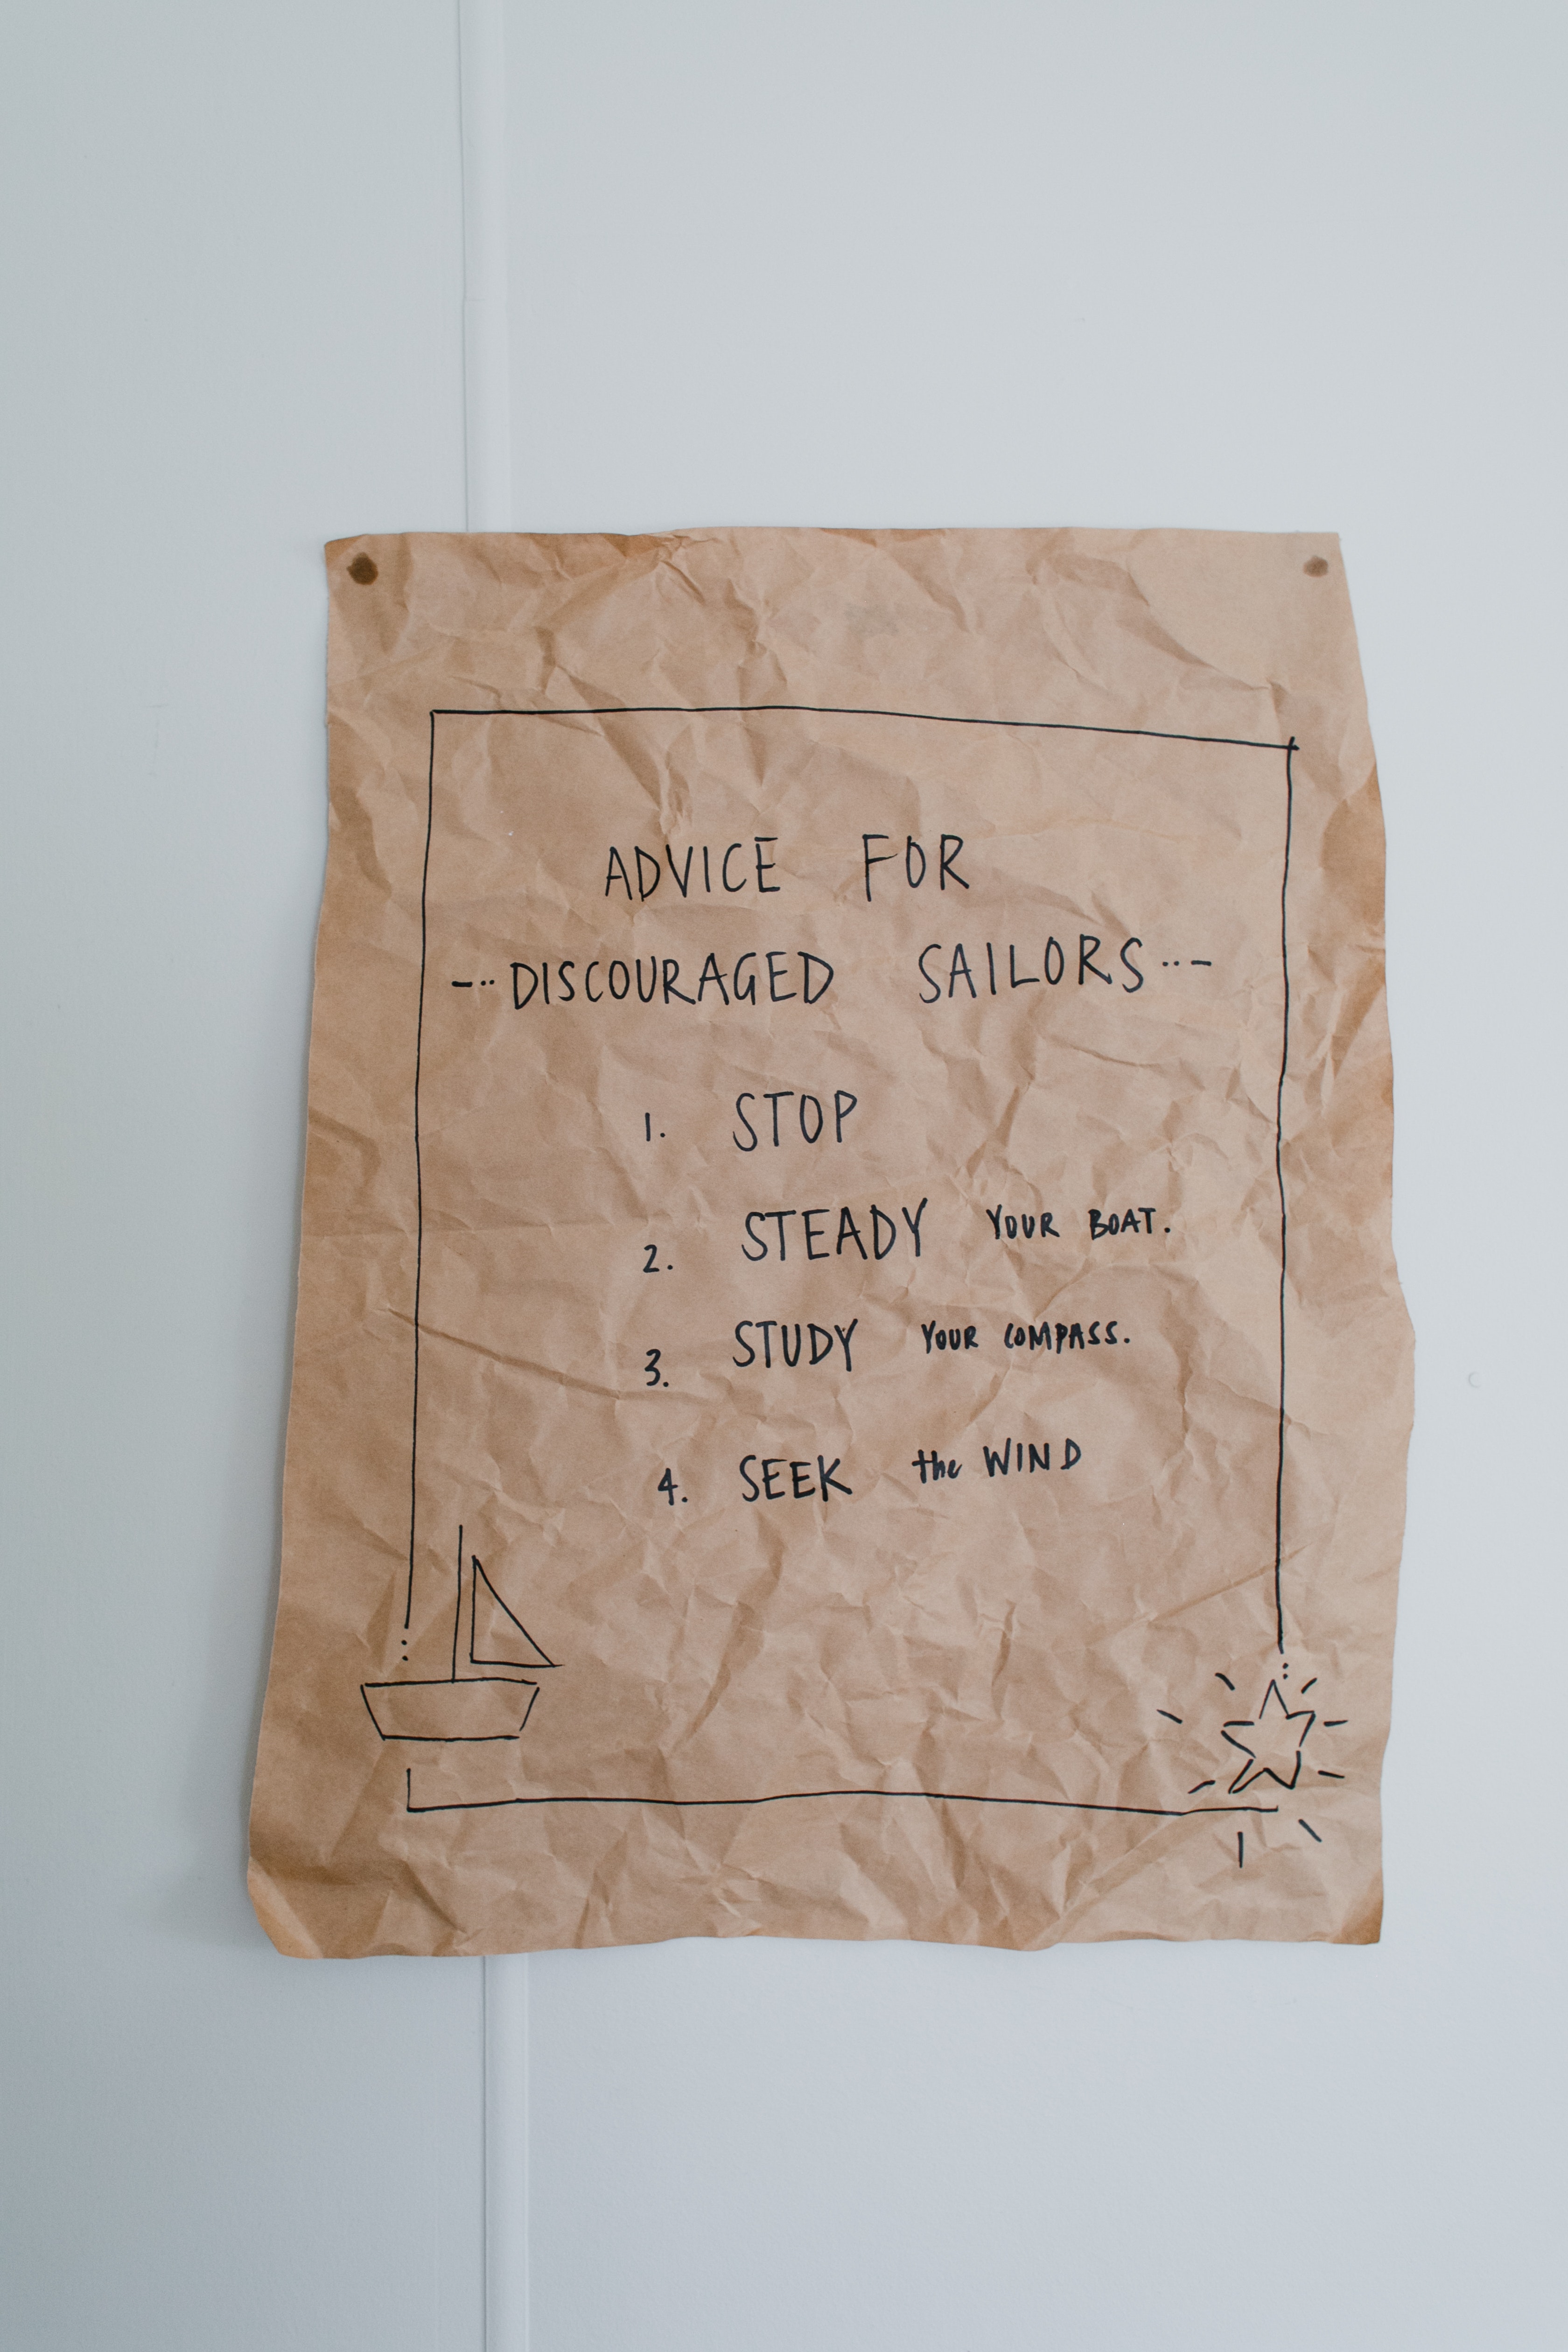 ADVICE FOR
-··DISCOURAGED SAILORS··-
1. STOP
2. STEADY YOUR BOAT.
3. STUDY YOUR COMPASS.
4. SEEK the WIND